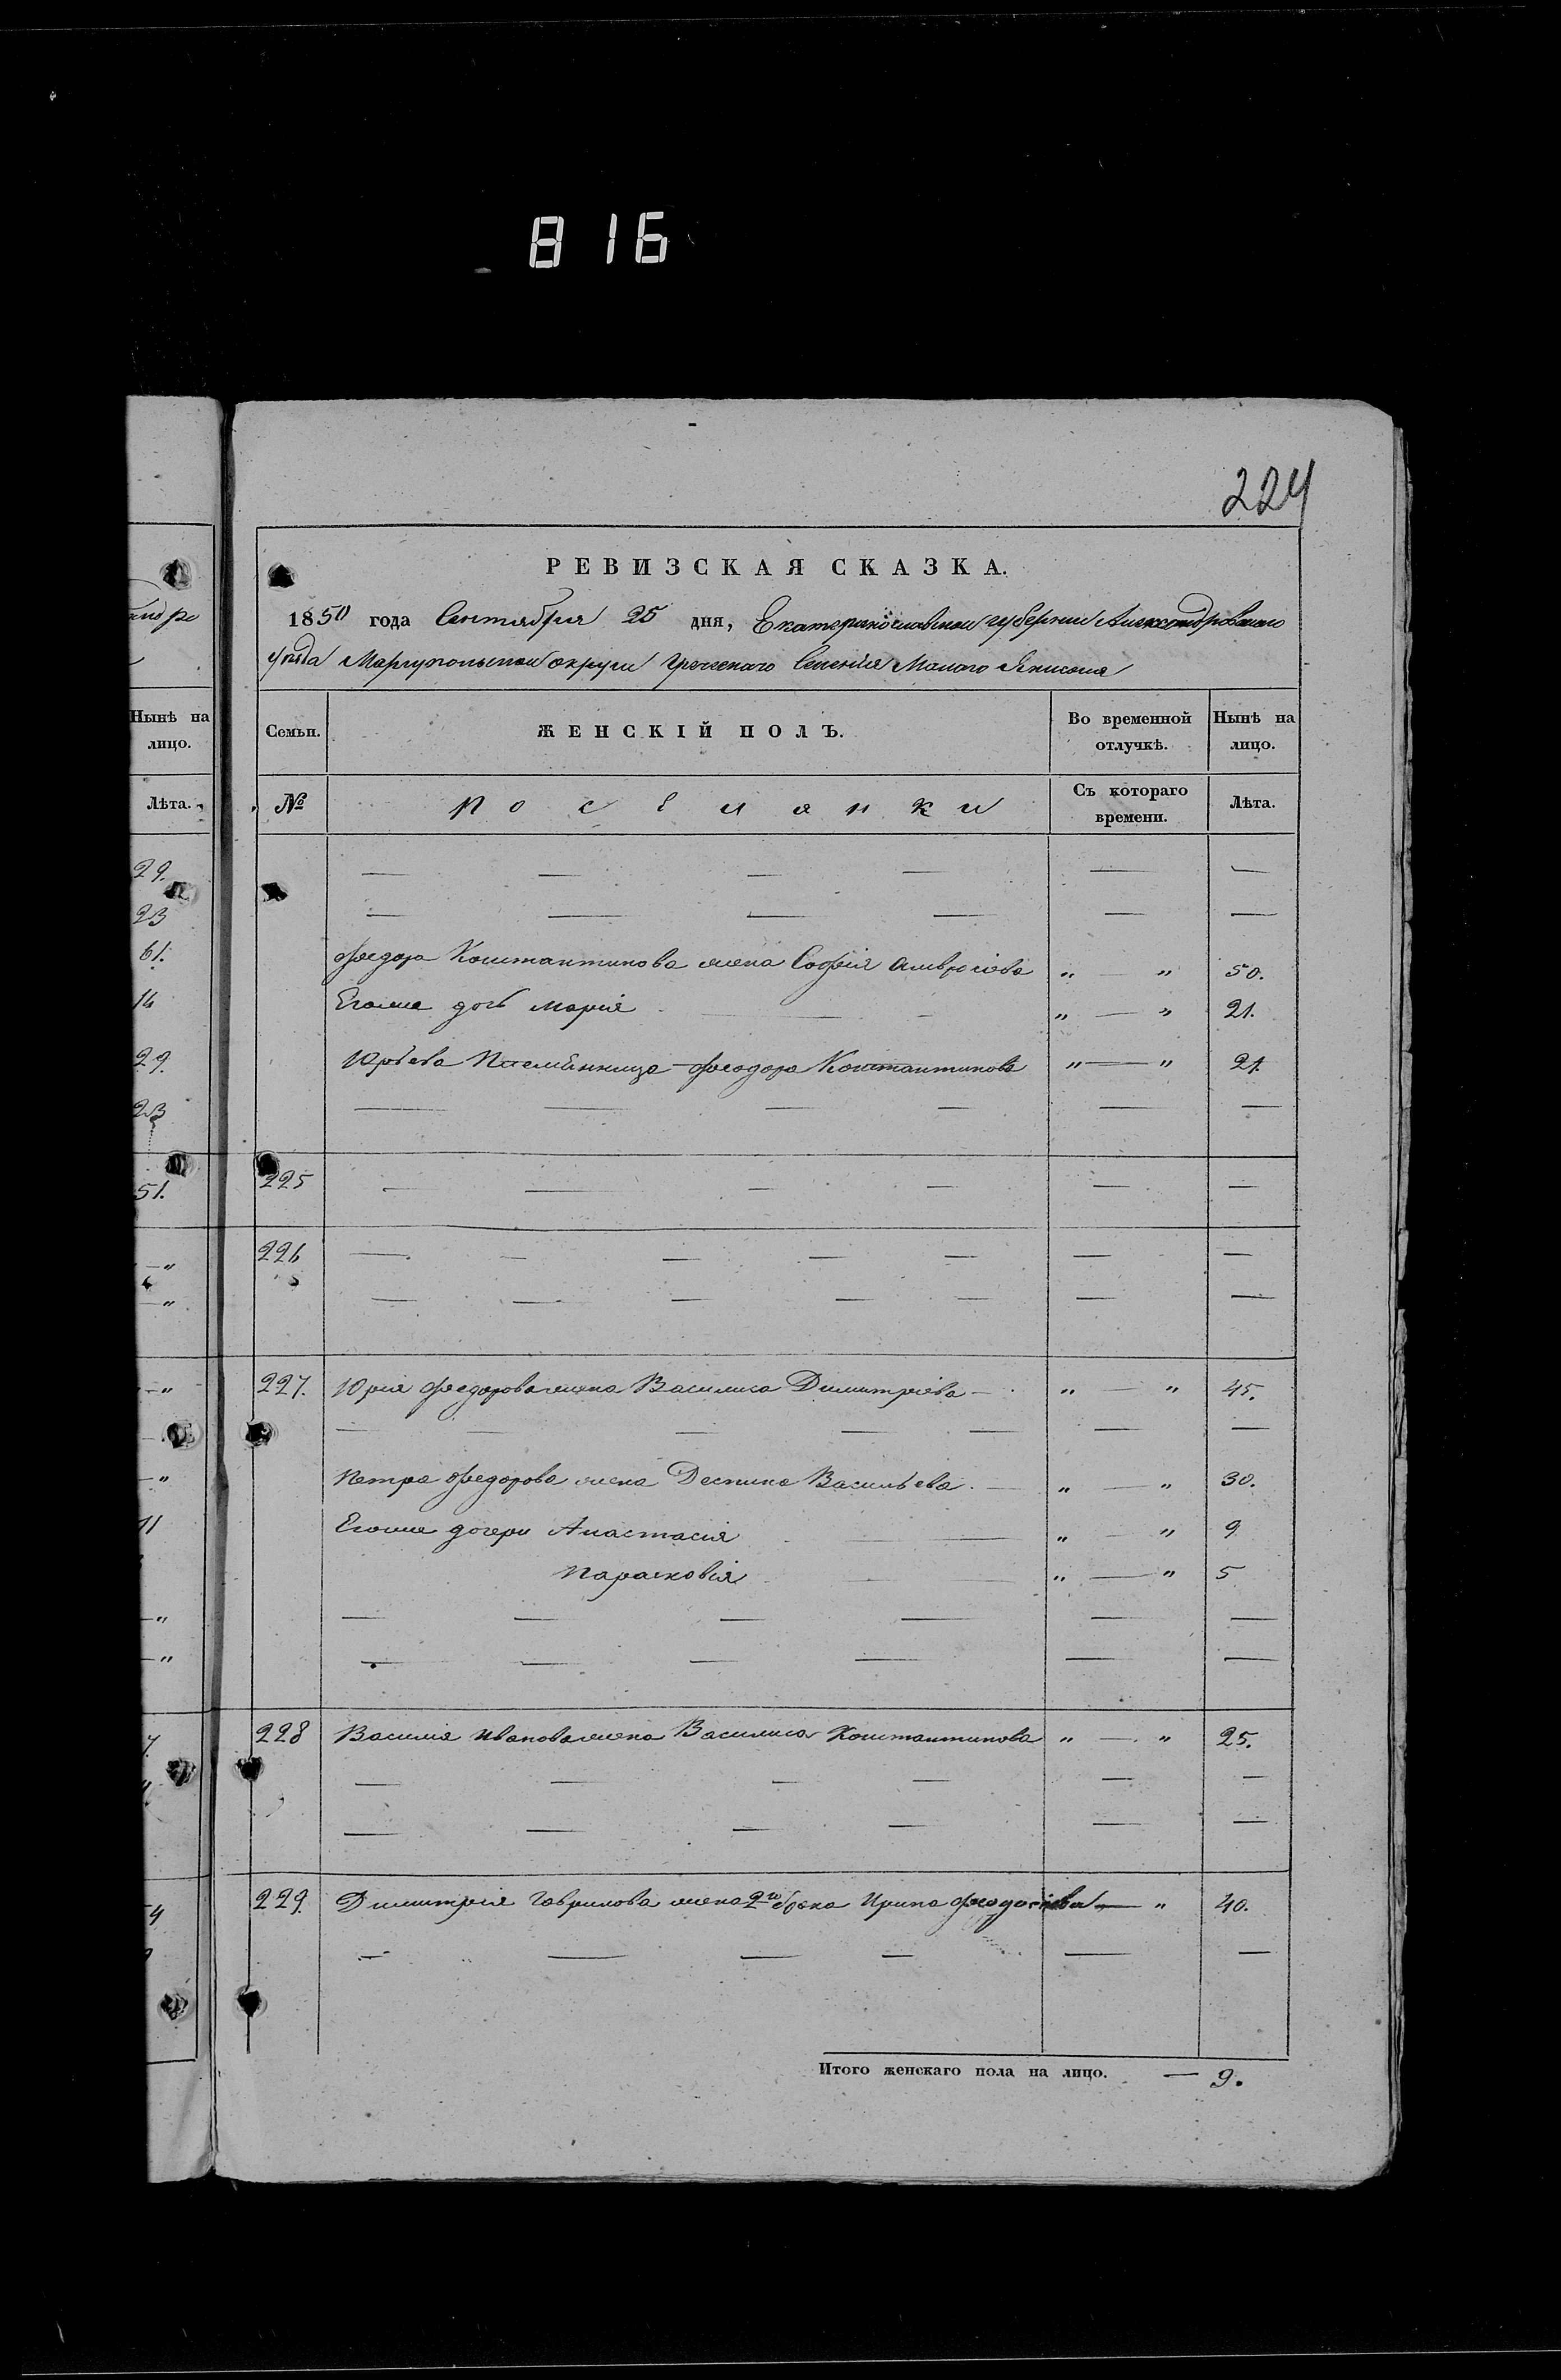 816
224
РЕВИЗСКАЯ СКАЗКА.
1850 года Сентября 25 дня, Екатеринославской губернии Александровскаго
уѣзда Мариупольской округи Греческаго Селенія Малаго Янисоля
Нынѣ на лицо.
Лѣта.
29.
23
61.
14
29.
23
51.
— "
— "
— "
— "
11
— "
— "
Семьи. ЖЕНСКІЙ ПОЛЪ. Во временной отлучкѣ. Нынѣ на лицо.
№ Поселянки Съ котораго времени. Лѣта.
— — — — — —
— — — — — —
Федора Константинова жена Софія Амвросіева " — " 50.
Егоже дочь Марія — — " — " 21.
Юрьева Племянница Феодора Константинова " — " 21.
— — — — — —
225 — — — — — —
226 — — — — — — —
— — — — — — —
227. Юрія Федорова жена Василиса Димитріева — " — " 45.
— — — — — — —
Петра Федорова жена Деспина Васильева. — " — " 30.
Егоже дочери Анастасія — — " — " 9
Парасковія — — " — " 5
— — — — — —
— — — — — —
228 Василія Иванова жена Василиса Константинова " — " 25.
— — — — — —
— — — — — —
229. Димитрія Гаврилова жена 2го брака Ирина Феодосіева — " 40.
— — — — — —
Итого женскаго пола на лицо. — 9.